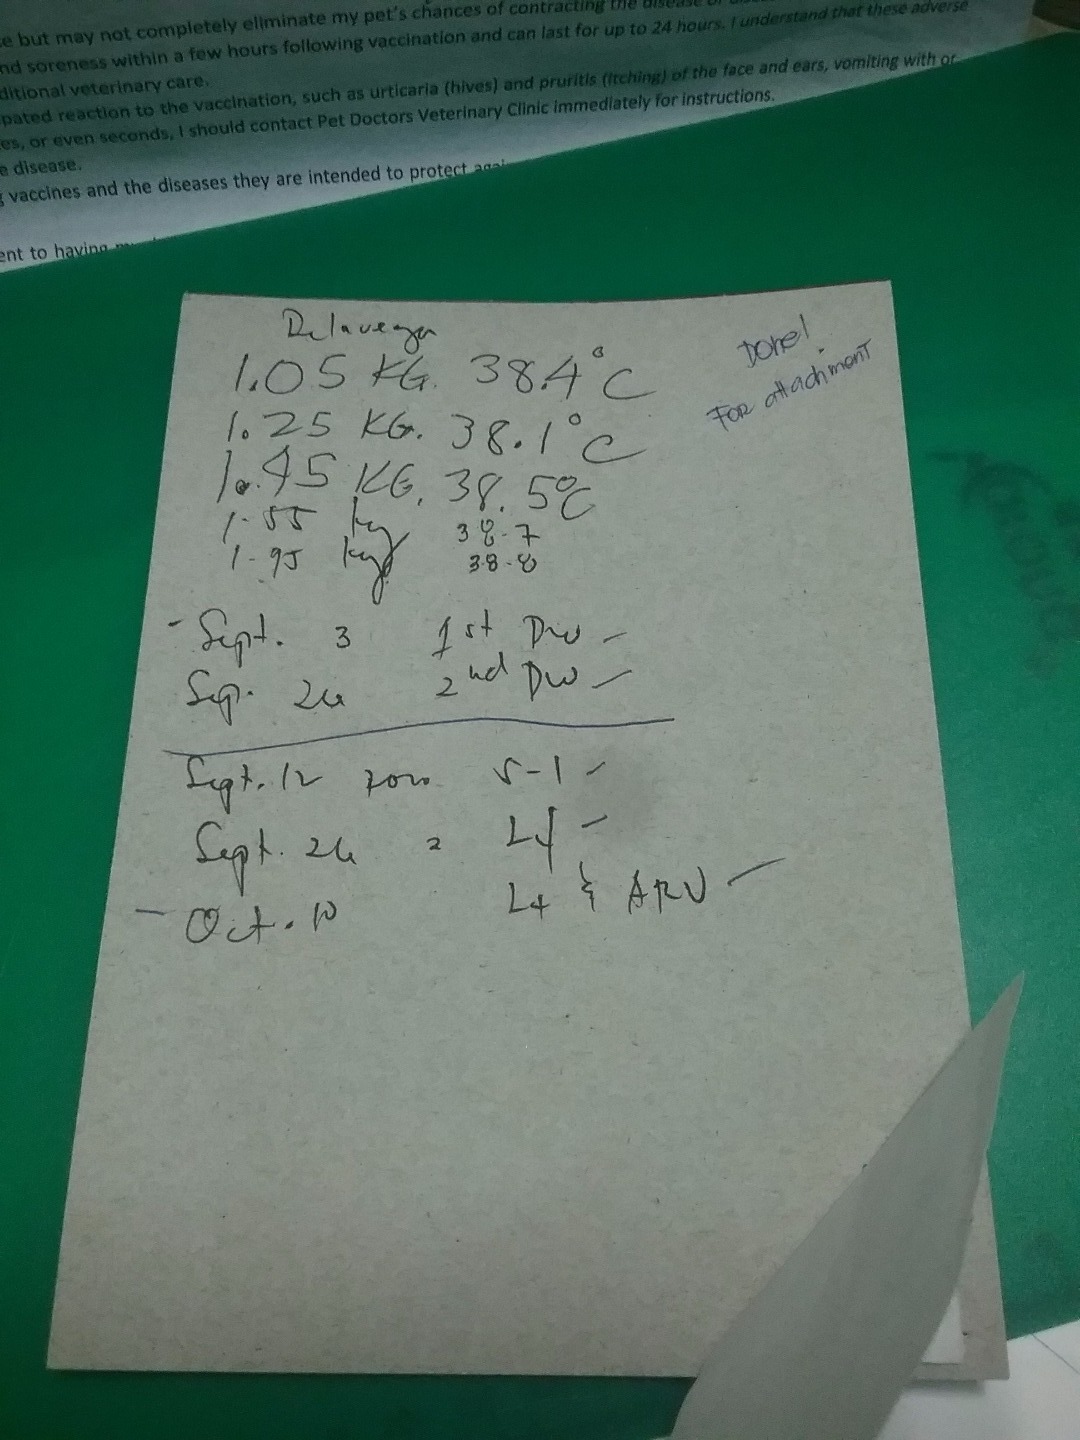 e but may not completely eliminate my pet's chances of contracting the disease
nd soreness within a few hours following vaccination and can last for up to 24 hours. I understand that these adverse
ditional veterinary care.
pated reaction to the vaccination, such as urticaria (hives) and pruritis (itching) of the face and ears, vomiting with or
es, or even seconds, I should contact Pet Doctors Veterinary Clinic immediately for instructions.
e disease.
g vaccines and the diseases they are intended to protect
ent to having
Delavega
1.05 KG. 38.4°C
1.25 KG. 38.1°C
1.45 KG. 38.5°C
1.55 kg 38.7
1.95 kg 38.8
Done!
For attachment
- Sept. 3 1st DW -
Sep. 24 2nd DW -
Sept. 12 5-1 -
Sept. 24 L4 -
- Oct. 10 L4 & ARV -